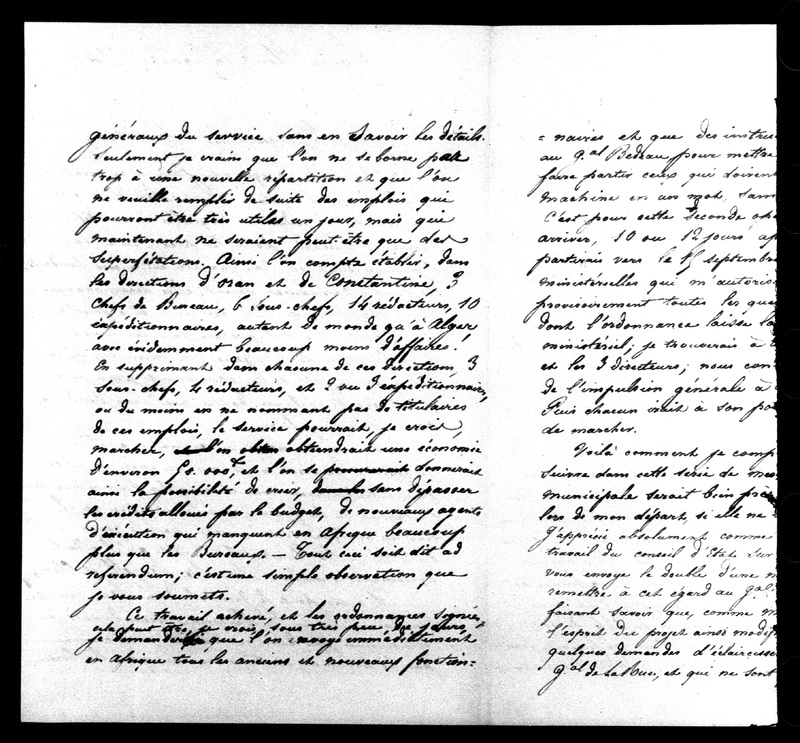 généraux du service sans en savoir les détails.
Seulement je crains que l'on ne se borne pas
trop à une nouvelle répartition et que l'on
ne veuille remplir de suite des emplois qui
pourront être très utiles un jour, mais qui
maintenant ne seraient peut-être que des
superfétations. Ainsi l'on compte établir, dans
les directions d'Oran et de Constantine, 3
Chefs de Bureau, 6 sous-chefs, 14 rédacteurs, 10
expéditionnaires, autant de monde qu'à Alger
avec évidemment beaucoup moins d'affaires!
En supprimant dans chacune de ces direction, 3
sous-chefs, 4 rédacteurs, et 2 ou 3 expéditionnaires,
ou du moins en ne nommant pas de titulaires
de ces emplois, le service pourrait, je crois,
marcher, l'on obtiendrait une économie
d'environ 000 f, et l'on se donnerait
ainsi la possibilité de créer, sans dépasser
les crédits alloués par le budget, de nouveaux agents
d'exécution qui manquent en Afrique beaucoup
plus que les Bureaux. — Tout ceci soit dit ad
referendum; c'est une simple observation que
je vous soumets.
Ce travail achevé et les ordonnances signées,
cela peut être, je crois, sous très peu de jours,
je demanderais que l'on envoyé immédiatement
en Afrique tous les anciens et nouveaux fonction=
= naires et que des instruc
au gal Bedeau pour mettre
faire partir ceux qui doivent
machine en un mot, sans
C'est pour cette seconde opé
arriver, 10 ou 12 jours ap
partirais vers le septembre
ministérielles qui m'autoris
provisoirement toutes les ques
dont l'ordonnance laisse la
ministériel; je trouverais à
et les 3 directeurs; nous con
de l'impulsion générale à
Puis chacun irait à son po
de marcher.
Voilà comment je comp
suivre dans cette série de mes
municipale serait bien près
lors de mon départ, si elle ne
J'apprécie absolument comme
travail du conseil d'État sur
vous envoye le double d'une n
remettre à cet égard au gal
faisant savoir que, comme m
l'esprit du projet ainsi modif
quelques demandes d'éclaircisse
gal de La Rue, et qui ne sont